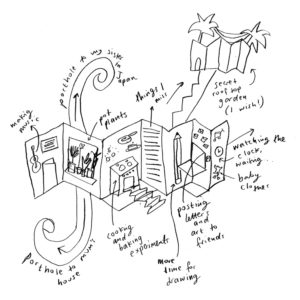 porthole to my sister in
Japan
making
music
pot
plants
things I
miss
secret
rooftop
garden
(I wish!)
watching the
clock,
waiting...
baby
clothes
posting
letters
and
art to
friends
cooking
and
baking
experiments
more
time for
drawing
Porthole to
house mum?